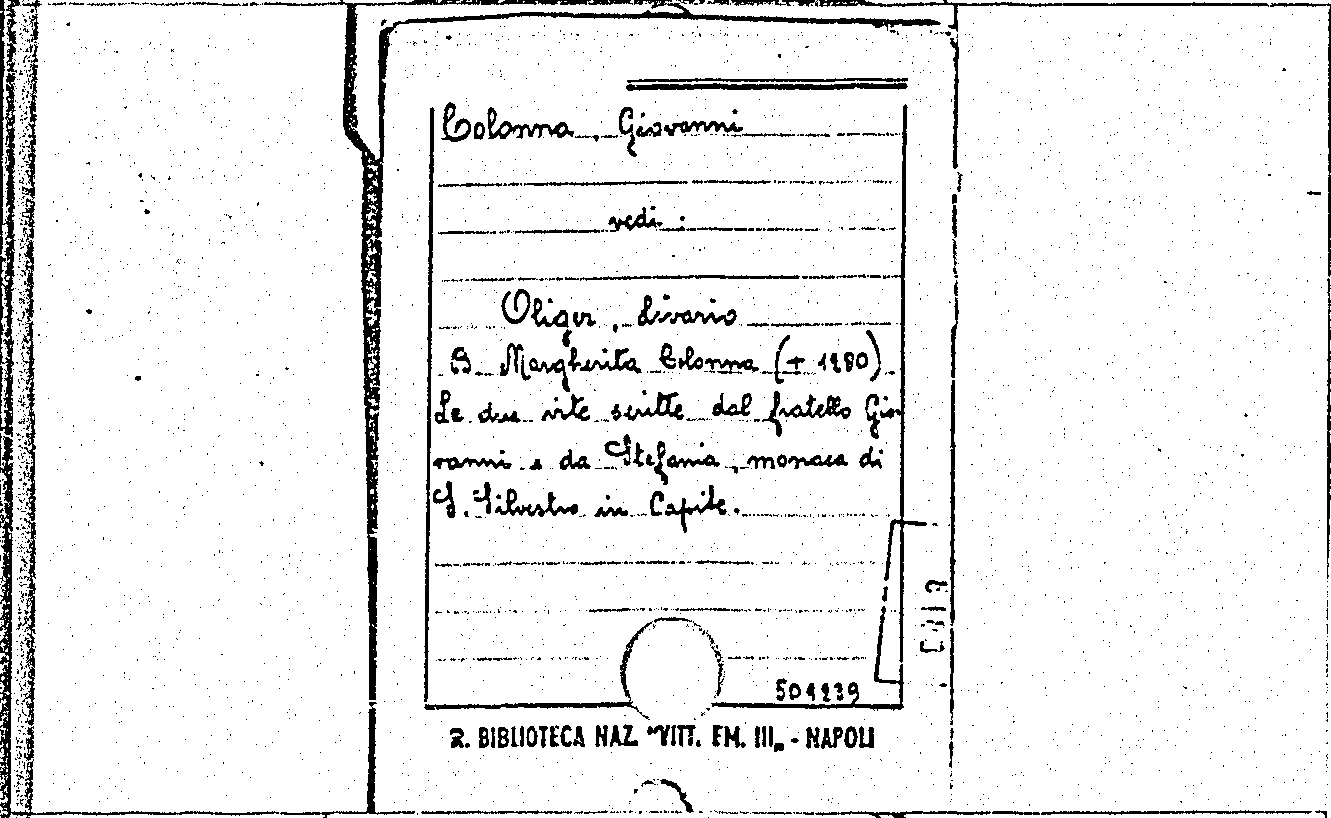 Colonna, Giovanni
vedi:
Oliger, Livario
B. Margherita Colonna († 1280)
Le due vite scritte dal fratello Gio-
vanni e da Stefania, monaca di
S. Silvestro in Capite.
501239
R. BIBLIOTECA NAZ. "VITT. EM. III„ - NAPOLI